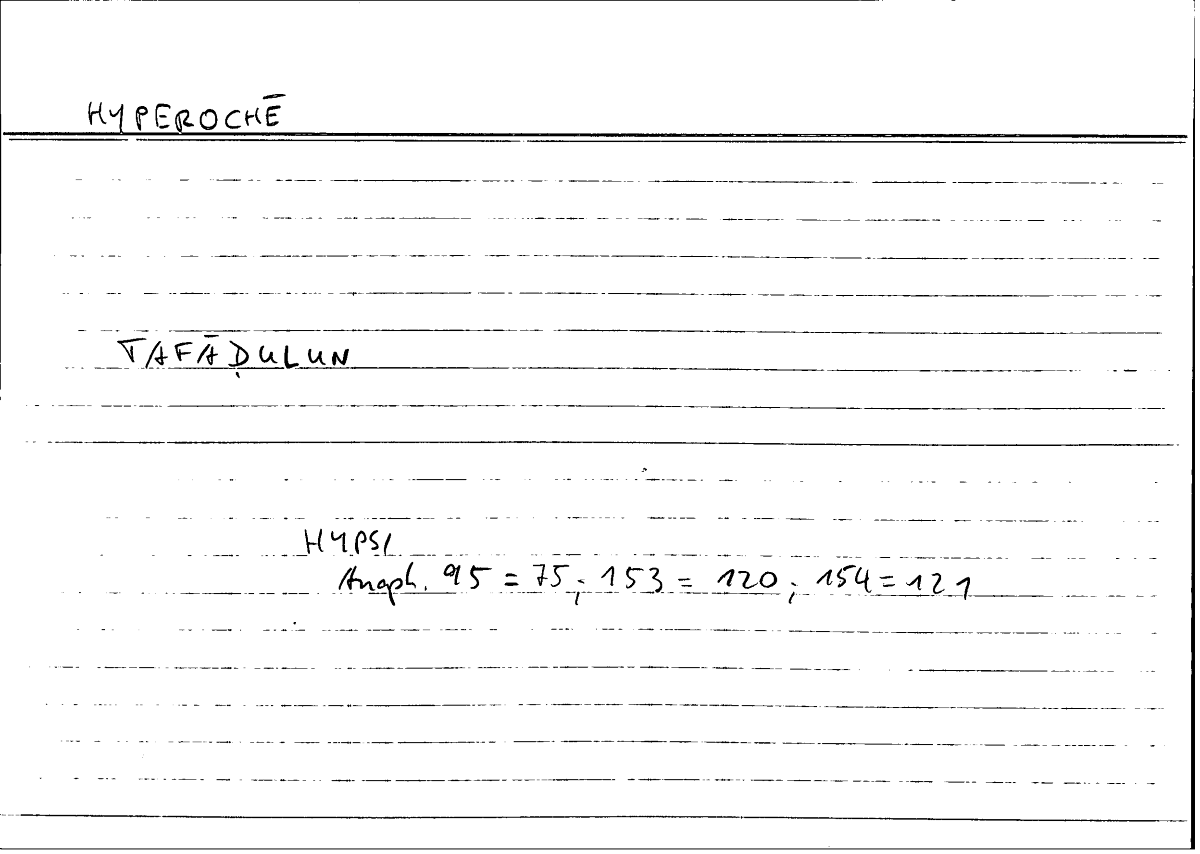 HYPEROCHĒ
TAFĀḌULUN
HYPSI
Anaph. 95 = 75; 153 = 120; 154 = 121